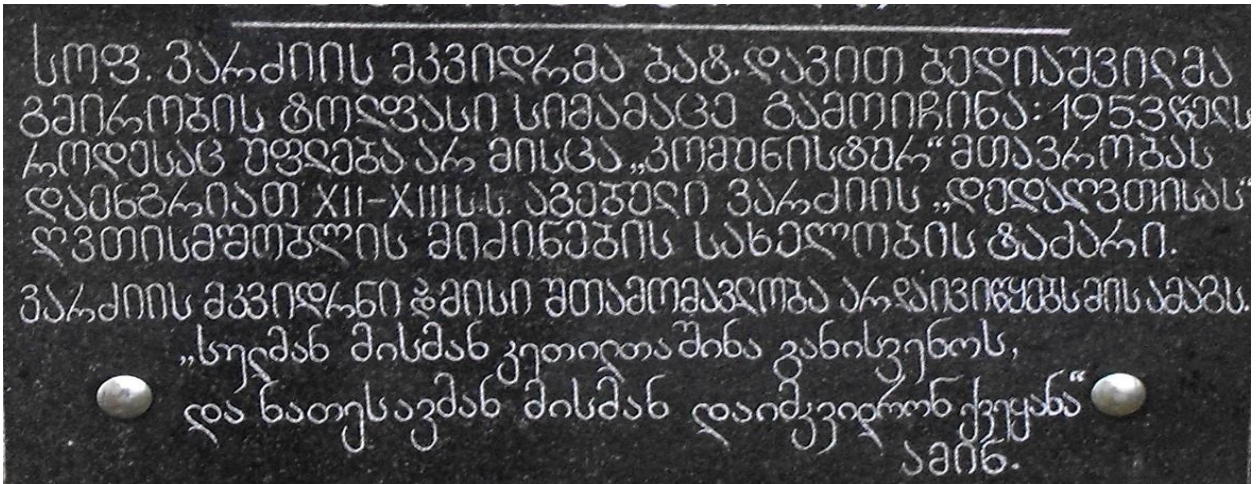 სოფ. ვარძიის მკვიდრმა ბატ. დავით ბედიაშვილმა
გმირობის ტოლფასი სიმამაცე გამოიჩინა: 1953 წელს
როდესაც უფლება არ მისცა „კომუნისტურ“ მთავრობას
დაენგრიათ XII–XIII ს.ს. აგებული ვარძიის „დედაღვთისას“
ღვთისმშობლის მიძინების სახელობის ტაძარი.
ვარძიის მკვიდრნი და მისი შთამომავლობა არ დაივიწყებს მის ამაგს.
„სულმან მისმან კეთილთა შინა განისვენოს,
და ნათესავმან მისმან დაიმკვიდრონ ქვეყანა“
ამინ.